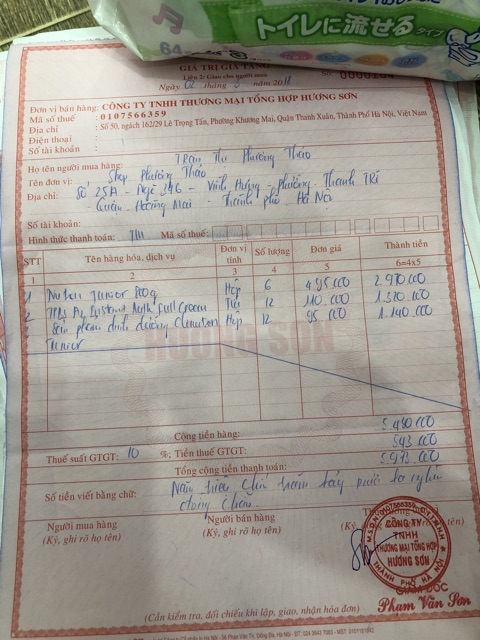 トイレに流せるタイプ
64
GIÁ TRỊ GIA TĂNG
Liên 2: Giao cho người mua
Ngày 02 tháng năm 2018
Đơn vị bán hàng: CÔNG TY TNHH THƯƠNG MẠI TỔNG HỢP HƯƠNG SƠN
Mã số thuế : 0107566359
Địa chỉ : Số 50, ngách 162/29 Lê Trọng Tấn, Phường Khương Mai, Quận Thanh Xuân, Thành Phố Hà Nội, Việt Nam
Điện thoại :
Số tài khoản :
Họ tên người mua hàng: Trần Thị Phương Thảo
Tên đơn vị: Shop Phương Thảo
Địa chỉ: Số 25A - Ngõ 346 - Vĩnh Hưng - Phường Thanh Trì
- Quận Hoàng Mai - Thành phố Hà Nội
Số tài khoản:
Hình thức thanh toán: TM Mã số thuế:
STT Tên hàng hóa, dịch vụ Đơn vị tính Số lượng Đơn giá Thành tiền
1 2 3 4 5 6=4x5
1 Junior 800g Hộp 6 495.000 2.970.000
2 Milk Full Cream Túi 12 110.000 1.320.000
Sản phẩm dinh dưỡng Hộp 12 95.000 1.140.000
Junior
HƯƠNG SƠN
Cộng tiền hàng: 5.430.000
Thuế suất GTGT: 10 %; Tiền thuế GTGT: 543.000
Tổng cộng tiền thanh toán: 5.973.000
Số tiền viết bằng chữ: Năm triệu chín trăm bảy mươi ba nghìn
đồng chẵn
Người mua hàng Người bán hàng
(Ký, ghi rõ họ tên) (Ký, ghi rõ họ tên)
CÔNG TY
TNHH
THƯƠNG MẠI TỔNG HỢP
HƯƠNG SƠN
THÀNH PHỐ HÀ NỘI
GIÁM ĐỐC
Phạm Văn Sơn
(Cần kiểm tra, đối chiếu khi lập, giao, nhận hóa đơn)